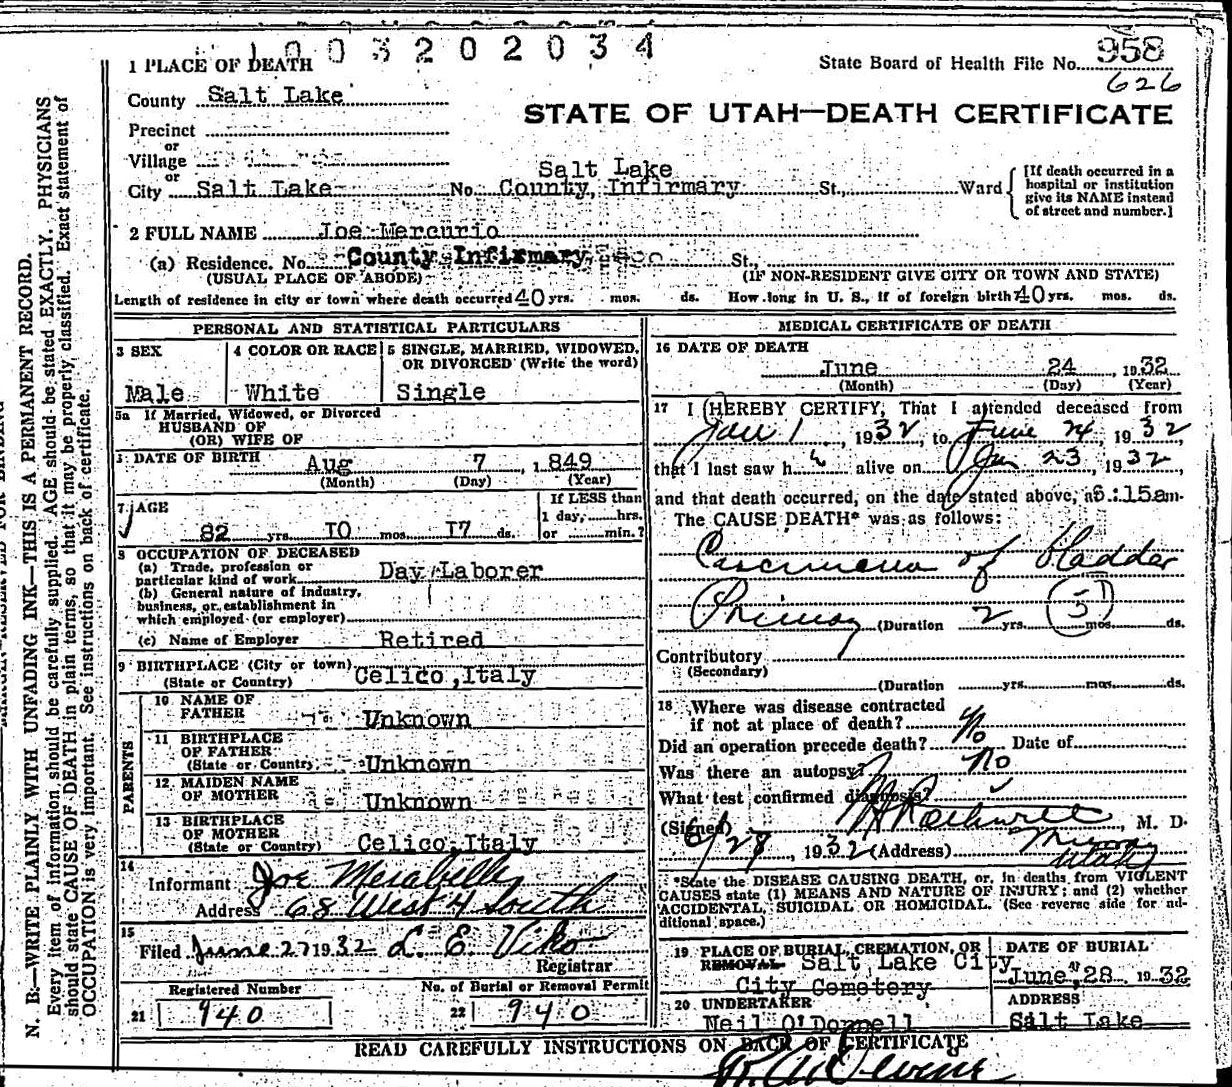 1003202034
1 PLACE OF DEATH
State Board of Health File No. 958
626
County Salt Lake
STATE OF UTAH—DEATH CERTIFICATE
Precinct
or
Village
or
Salt Lake
City Salt Lake No. County, Infirmary St., Ward
[If death occurred in a
hospital or institution
give its NAME instead
of street and number.]
2 FULL NAME Joe Mercurio
(a) Residence. No. County Infirmary St.,
(USUAL PLACE OF ABODE) (IF NON-RESIDENT GIVE CITY OR TOWN AND STATE)
Length of residence in city or town where death occurred 40 yrs. mos. ds. How long in U. S., if of foreign birth? 40 yrs. mos. ds.
PERSONAL AND STATISTICAL PARTICULARS
3 SEX
Male
4 COLOR OR RACE
White
5 SINGLE, MARRIED, WIDOWED,
OR DIVORCED (Write the word)
Single
5a If Married, Widowed, or Divorced
HUSBAND OF
(OR) WIFE OF
DATE OF BIRTH Aug 7, 1849
(Month) (Day) (Year)
7 AGE
82 yrs. 10 mos. 17 ds.
If LESS than
1 day, hrs.
or min.?
8 OCCUPATION OF DECEASED
(a) Trade, profession or
particular kind of work Day Laborer
(b) General nature of industry,
business, or establishment in
which employed (or employer)
(c) Name of Employer Retired
9 BIRTHPLACE (City or town)
(State or Country) Celico, Italy
PARENTS
10 NAME OF
FATHER Unknown
11 BIRTHPLACE
OF FATHER
(State or Country) Unknown
12 MAIDEN NAME
OF MOTHER Unknown
13 BIRTHPLACE
OF MOTHER
(State or Country) Celico, Italy
14
Informant Joe Merabelle
Address 68 West 4 South
15
Filed June 27 1932 L. E. Viko
Registrar
Registered Number
21 940
No. of Burial or Removal Permit
22 940
MEDICAL CERTIFICATE OF DEATH
16 DATE OF DEATH
June 24, 1932
(Month) (Day) (Year)
17 I HEREBY CERTIFY, That I attended deceased from
Jan 1, 1932, to June 24, 1932
that I last saw h alive on Jun 23, 1932,
and that death occurred, on the date stated above, at 6:15 am.
The CAUSE DEATH* was as follows:
Carcinoma of bladder
Primary (Duration 2 yrs. 5 mos. ds.
Contributory
(Secondary)
(Duration yrs. mos. ds.
18 Where was disease contracted
if not at place of death?
Did an operation precede death? No Date of
Was there an autopsy? No
What test confirmed diagnosis?
(Signed) M. D.
6/27, 1932 (Address) Murray
Utah
*State the DISEASE CAUSING DEATH, or, in deaths from VIOLENT
CAUSES state (1) MEANS AND NATURE OF INJURY; and (2) whether
ACCIDENTAL, SUICIDAL OR HOMICIDAL. (See reverse side for ad-
ditional space.)
19 PLACE OF BURIAL, CREMATION, OR
REMOVAL Salt Lake City
City Cemetery
DATE OF BURIAL
June 28, 1932
20 UNDERTAKER
Neil O'Donnell
ADDRESS
Salt Lake
READ CAREFULLY INSTRUCTIONS ON BACK OF CERTIFICATE
N. B.—WRITE PLAINLY WITH UNFADING INK—THIS IS A PERMANENT RECORD.
Every item of information should be carefully supplied. AGE should be stated EXACTLY. PHYSICIANS
should state CAUSE OF DEATH in plain terms, so that it may be properly classified. Exact statement of
OCCUPATION is very important. See instructions on back of certificate.